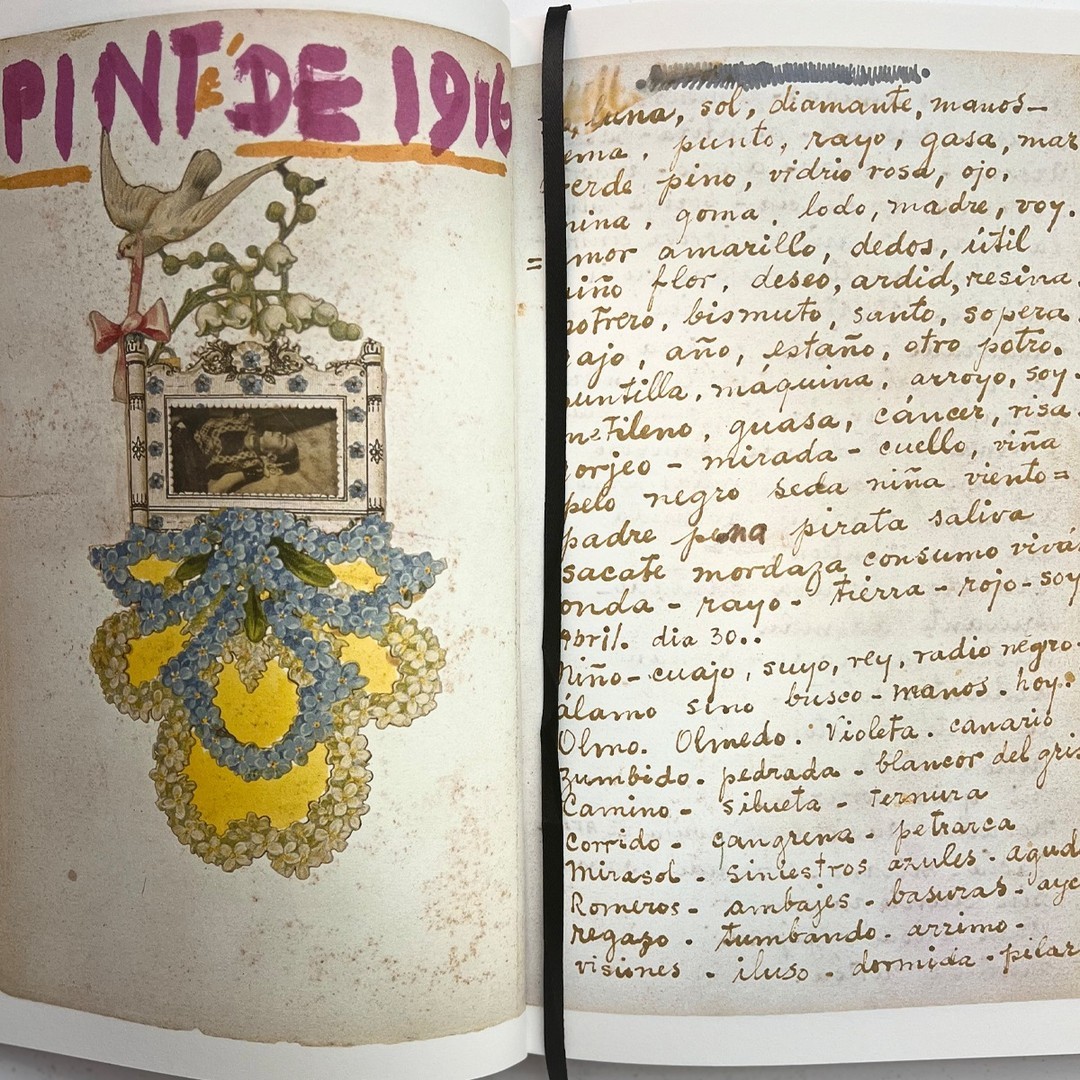 PINTÉ DE 1916
luna, sol, diamante, manos-
punto, rayo, gasa, mar
pino, vidrio rosa, ojo,
goma, lodo, madre, voy.
= amarillo, dedos, útil
flor, deseo, ardid, resina.
bismuto, santo, sopera.
año, estaño, otro potro.
máquina, arroyo, soy.
guasa, cáncer, risa.
- mirada - cuello, viña
pelo negro seda niña viento =
padre pena pirata saliva
sacate mordaza consumo
onda - rayo - tierra - rojo - soy
Abril. dia 30..
Niño-cuajo, suyo, rey, radio negro-
álamo sino busco - manos. hoy.
Olmo. Olmedo. Violeta. canario
zumbido. pedrada - blancor del gris
Camino - silueta - Ternura
Corrido - gangrena - petrarca
Mirasol - siniestros azules -
Romeros - ambajes - basuras -
regazo - tumbando - arrimo -
visiones - iluso - dormida - pilar